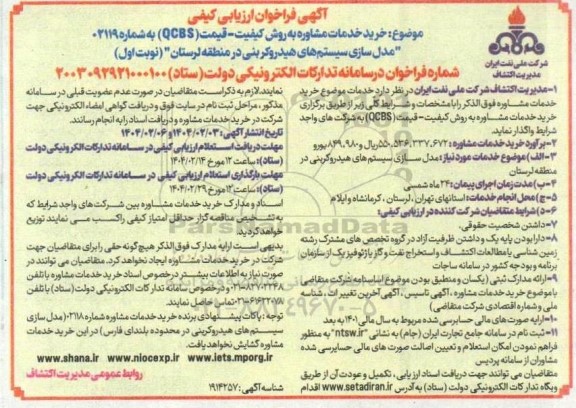 آگهی فراخوان ارزیابی کیفی
موضوع: خرید خدمات مشاوره به روش کیفیت - قیمت (QCBS) به شماره ۰۲۱۱۹
"مدل سازی سیستم‌های هیدروکربنی در منطقه لرستان" (نوبت اول)
شرکت ملی نفت ایران
مدیریت اکتشاف
شماره فراخوان در سامانه تدارکات الکترونیکی دولت (ستاد) ۲۰۰۳۰۹۲۹۲۱۰۰۰۱۰۰
۱- مدیریت اکتشاف شرکت ملی نفت ایران در نظر دارد خدمات موضوع خرید
خدمات مشاوره فوق الذکر را با مشخصات و شرایط کلی زیر از طریق برگزاری
خرید خدمات مشاوره به روش کیفیت - قیمت (QCBS) به شرکت های واجد
شرایط واگذار نماید.
۲- برآورد خرید خدمات مشاوره: ۵۵۰,۵۳۶,۳۳۷,۶۷۲ ریال و ۸۴۹,۹۸۰ یورو
۳- الف) موضوع خدمات مورد نیاز: مدل سازی سیستم های هیدروکربنی در
منطقه لرستان
۴- ب) مدت زمان اجرای پیمان: ۲۴ ماه شمسی
۵- ج) محل انجام خدمات: استانهای تهران، لرستان، کرمانشاه و ایلام
۶- د) شرایط متقاضیان شرکت کننده در ارزیابی کیفی:
۷- داشتن شخصیت حقوقی.
۸- دارا بودن پایه یک و داشتن ظرفیت آزاد در گروه تخصص های مشترک رشته
زمین شناسی یا مطالعات اکتشاف و استخراج نفت و گاز یا ژئوفیزیک از سازمان
برنامه و بودجه کشور در سامانه ساجات
۹- ارائه مدارک ثبتی (یکسان و منطبق بودن موضوع اساسنامه شرکت متقاضی
با موضوع خرید خدمات مشاوره، آگهی تاسیس، آگهی آخرین تغییرات، شناسه
ملی و شماره اقتصادی شرکت متقاضی)
۱۰- ارایه صورت های مالی حسابرسی شده مربوط به سال مالی ۱۴۰۱ به بعد
۱۱- ثبت نام در سامانه جامع تجارت ایران (جام) به نشانی "ntsw.ir" به منظور
فراهم نمودن امکان استعلام و تعیین اصالت صورت های مالی حسابرسی شده
مشاوران از سامانه پردیس
متقاضیان می توانند جهت دریافت اسناد ارزیابی، تکمیل و عودت آن از طریق
وبگاه تدارکات الکترونیکی دولت (ستاد) به آدرس www.setadiran.ir اقدام
نمایند. لازم به ذکر است متقاضیان در صورت عدم عضویت قبلی در سامانه
مذکور، مراحل ثبت نام در سایت فوق و دریافت گواهی امضاء الکترونیکی جهت
شرکت در خرید خدمات مشاوره و دریافت اسناد را به انجام رسانند.
تاریخ انتشار آگهی: ۱۴۰۴/۰۲/۰۳ و ۱۴۰۴/۰۲/۰۶
مهلت دریافت استعلام ارزیابی کیفی در سامانه تدارکات الکترونیکی دولت
(ستاد): ساعت ۱۲ مورخ ۱۴۰۴/۰۲/۱۴
مهلت بارگذاری استعلام ارزیابی کیفی در سامانه تدارکات الکترونیکی دولت
(ستاد): ساعت ۱۲ مورخ ۱۴۰۴/۰۲/۲۹
اسناد و مدارک خرید خدمات مشاوره بین شرکت های واجد شرایط که
به تشخیص مناقصه گزار حداقل امتیاز کیفی را کسب می نمایند توزیع
خواهد گردید.
بدیهی است ارایه مدارک فوق الذکر هیچگونه حقی را برای متقاضیان جهت
شرکت در خرید خدمات مشاوره ایجاد نخواهد کرد. متقاضیان می توانند در
صورت نیاز به اطلاعات بیشتر در خصوص اسناد خرید خدمات مشاوره با تلفن
و در خصوص سامانه تدارکات الکترونیکی دولت (ستاد) با تلفن
تماس حاصل نمایند.
توجه: پاکات پیشنهادی برنده خرید خدمات مشاوره شماره ۰۲۱۱۸ (مدل سازی
سیستم های هیدروکربنی در محدوده بلندای فارس) در این خرید خدمات
مشاوره گشایش نخواهد یافت.
www.shana.ir www.niocexp.ir www.iets.mporg.ir
شناسه آگهی: ۱۹۱۴۲۵۷ روابط عمومی مدیریت اکتشاف
ParsNamadData